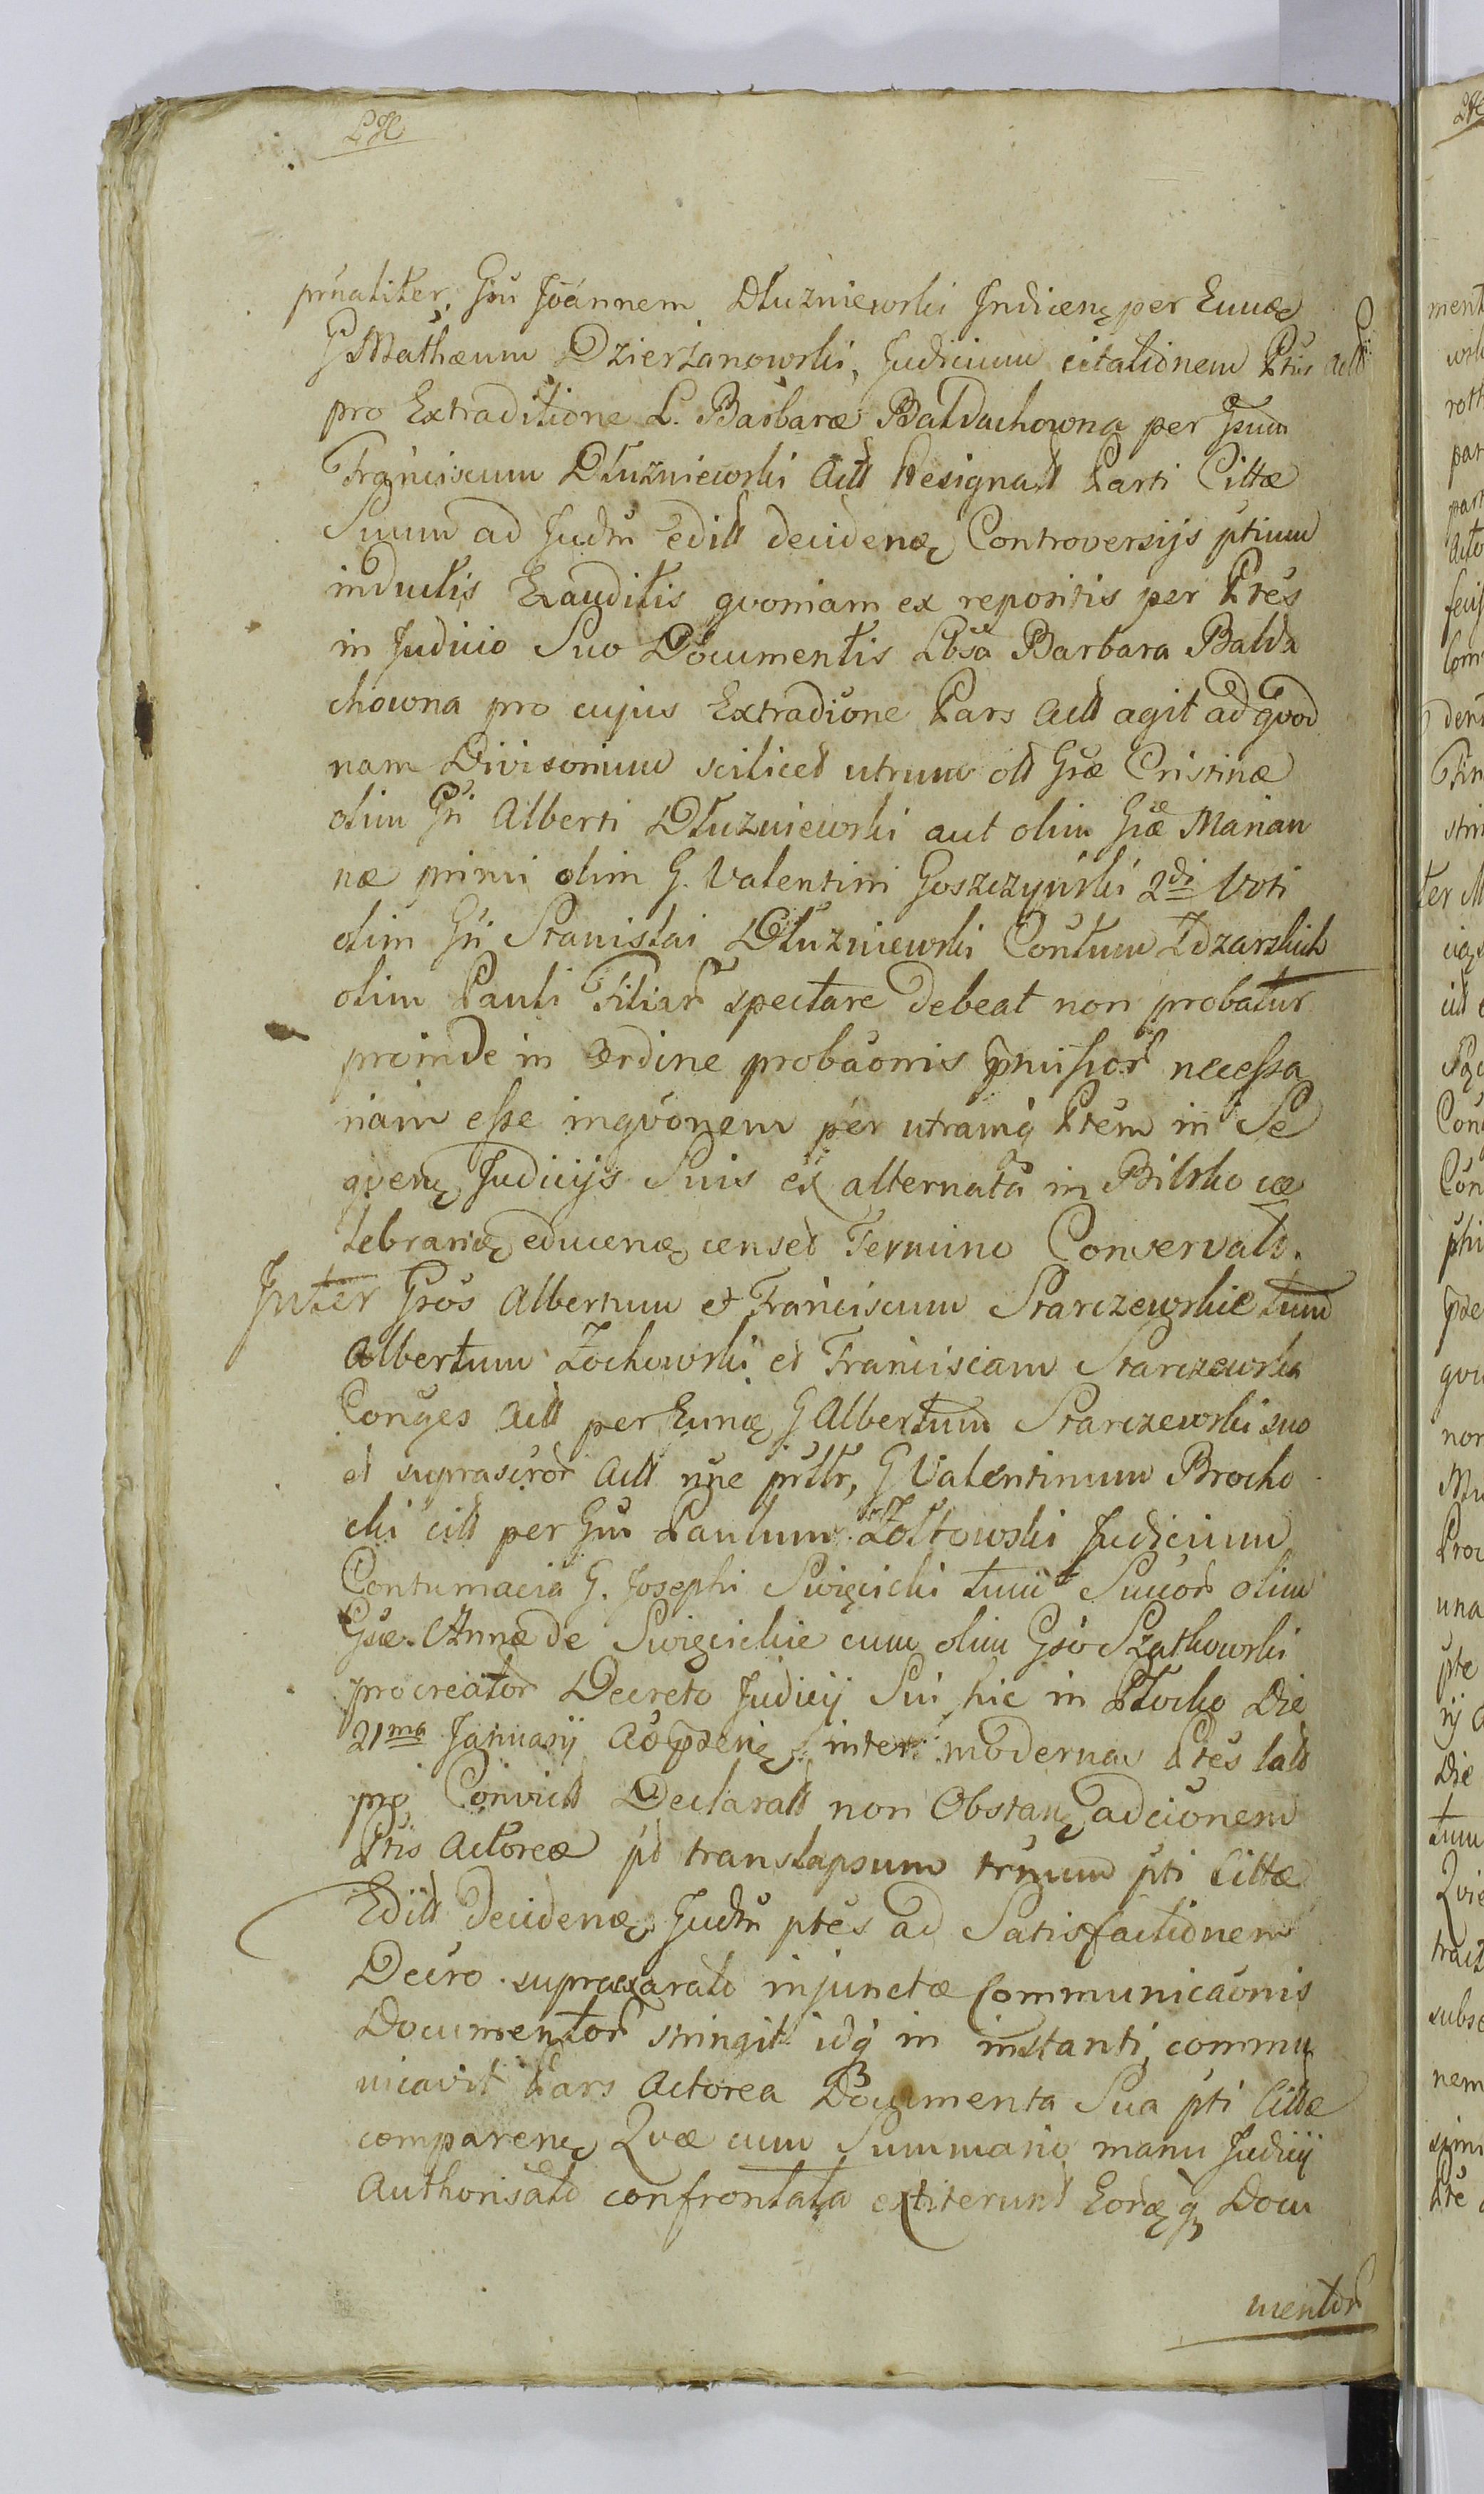 LH
prnaliter, Gsu Joannem Dłuzniewski Indicenę per Eumę
G Mathæum Dzierżanowski, Judicium citationem Ptis Actt
pro Extraditione L. Barbaræ Baldachowna per Gsum
Franciscum Dłuzniewski Actt Designatt Parti Cittæ
Suum ad Judm edill decidenę Controversijs ptium
inductis Exauditis qvoniam ex repositis per Ptes
in Judicio Suo Documentis Lbsa Barbara Balda
chowna pro cujus Extradione Pars Actt agit ad qvod
nam Divisorium scilicet utrum ott Gsæ Cristinæ
olim Gsi Alberti Dłuzniewski aut olim Gsæ Marian
næ primi olim G. Valentini Goszczyński 2di Voti
olim Gsi Stanislai Dłuzniewski Contum Zdzarskich
olim Pauli Filiar spectare debeat non probatur
proinde in ordine probaonis pmissor necessa
riam esse inqvonem per utramq Ptem in Se
qvenę Judicijs Suis ex alternata in Bilsko cæ
lebranę educenę censet Termino Conservatt.
Inter Gsos Albertum et Franciscum Starczewskie tum
Albertum Żochowski et Franciscam Starczewska
Conges Actt per Eunę G Albertum Starczewski suo
et suprascror Actt nne prttr, G Valentinum Brocho
cki citt per Gsu Paulum Żołtowski Judicium
Contumacia G. Josephi Swięcicki tum Succor olim
Gsæ Annæ de Swięcickie cum olim Gso Szatkowski
procreator Decreto Judicij Sui hic in Płocko Die
21ma Januarij Ao præenę inter modernas Ptes latt
pro Convictt Declaratt non Obstanę adcionem
Ptis Actoreæ pd translapsum trmum pti Cittæ
Edill Decidenę Judm ptes ad Satisfactionem
Decro supraexarato injunctæ Communicaonis
Documentor stringit idq in instanti commu
nicavit Pars Actorea Documenta Sua pti Cittæ
comparenę Qvæ cum Summario manu Judicij
Authorisato confrontata extiterunt Eorę q Docu
mentor